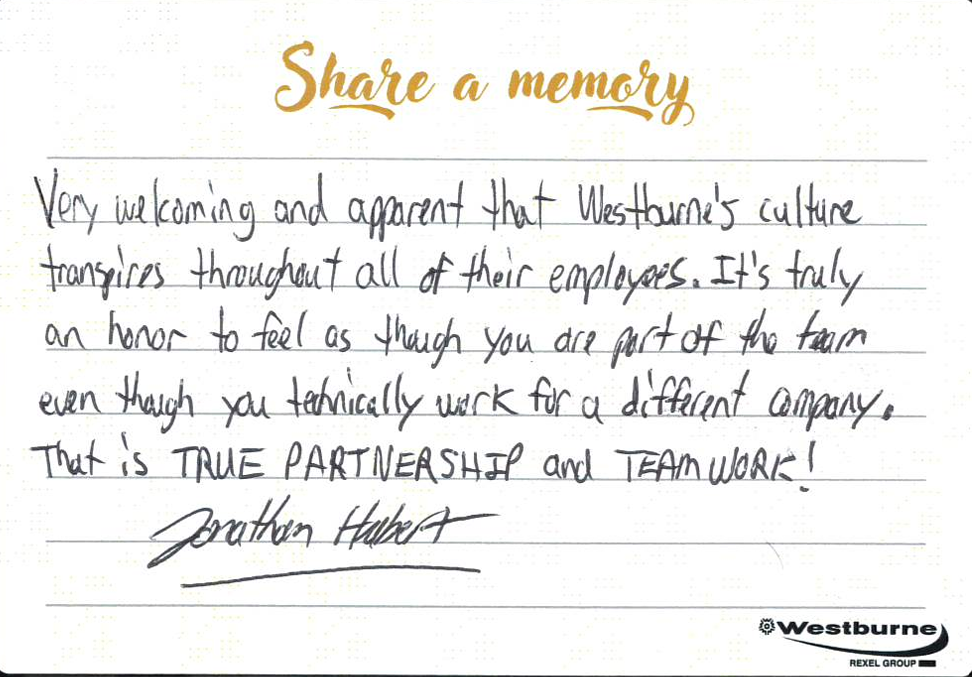 Share a memory
Very welcoming and apparent that Westburne's culture
transpires throughout all of their employees. It's truly
an honor to feel as though you are part of the team
even though you technically work for a different company.
That is TRUE PARTNERSHIP and TEAMWORK!
Jonathan Hubert
Westburne
REXEL GROUP